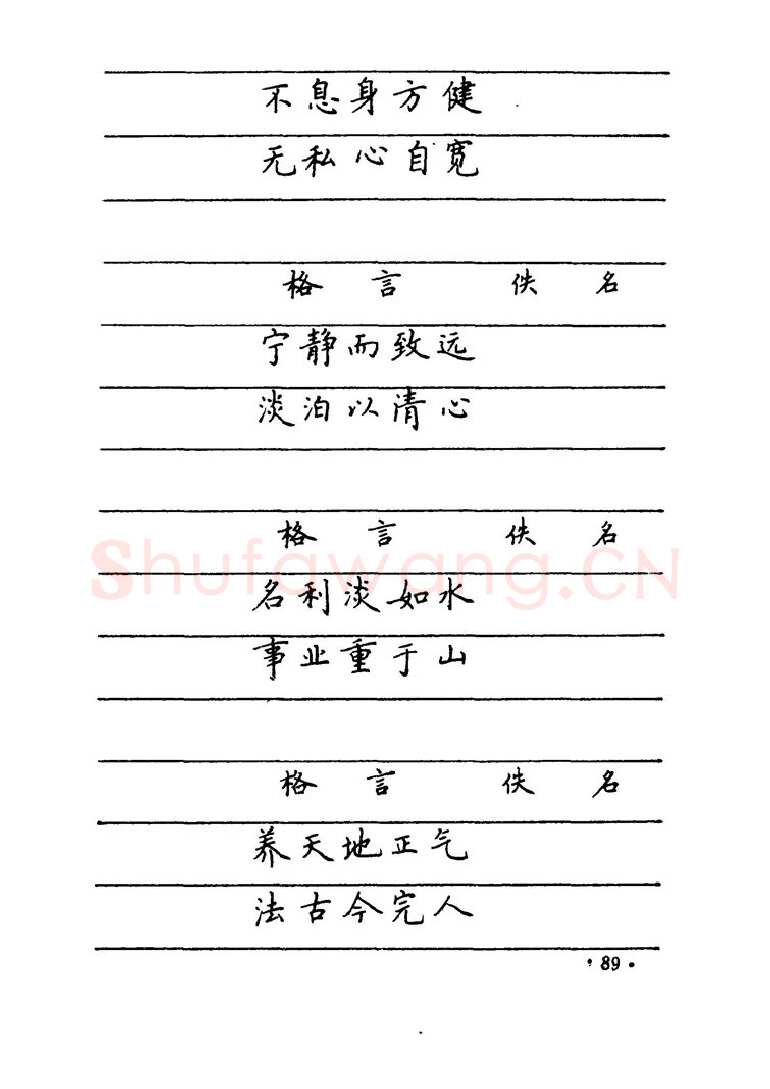 不息身方健
无私心自宽
格言 佚名
宁静而致远
淡泊以清心
格言 佚名
Shufawang.CN
名利淡如水
事业重于山
格言 佚名
养天地正气
法古今完人
·89·